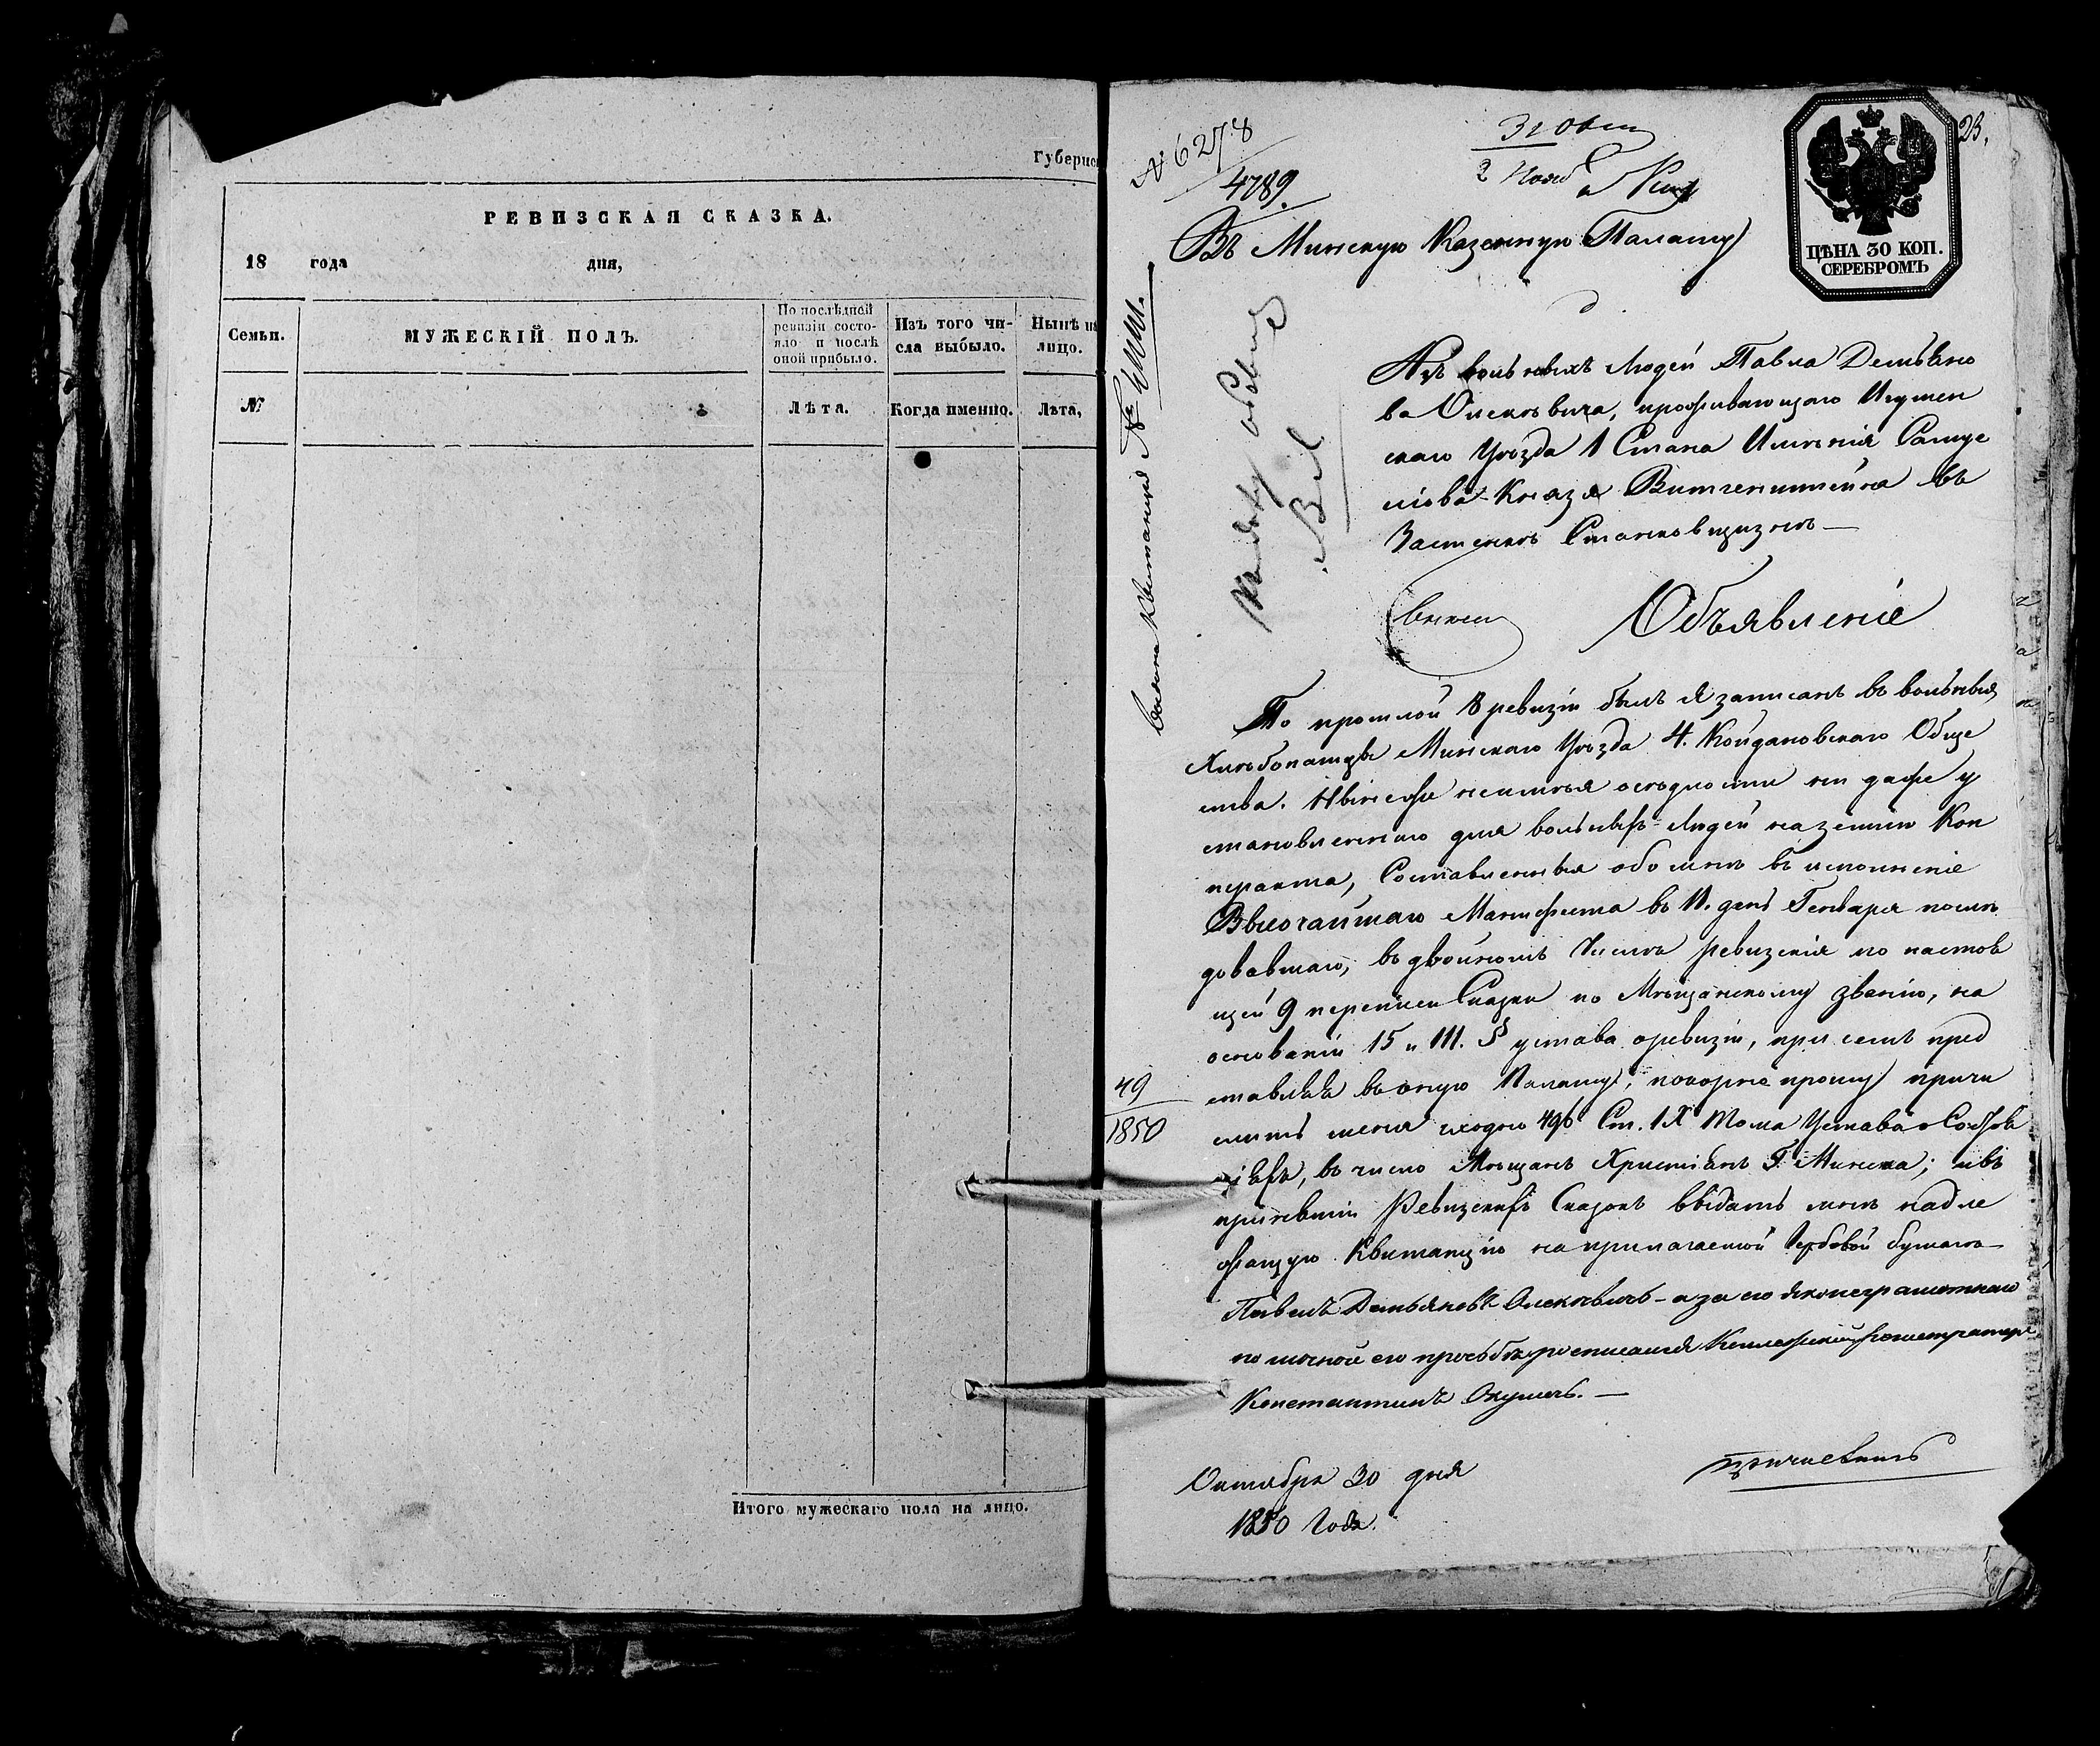 Губернс
РЕВИЗСКАЯ СКАЗКА.
18 года дня,
Семьи.
МУЖЕСКІЙ ПОЛЪ.
По послѣдней
ревизіи состо-
яло и послѣ
оной прибыло.
Изъ того чи-
сла выбыло.
Нынѣ на
лицо.
№
Лѣта.
Когда именно.
Лѣта,
Итого мужескаго пола на лицо.
№ 6278
4789.
31 Окт
2 Нояб
23.
ЦѢНА 30 КОП.
СЕРЕБРОМЪ
Въ Минскую Казенную Палату
Изъ вольныхъ Людей Павла Демьяно
ва Олехновича, проживающаго Игумен
скаго Уѣзда 1 Стана Имѣнія
Князя Витгенштейна въ
Застенкѣ Станковщизнѣ
Объявленіе
По прошлой 8 ревизіи былъ я записанъ въ вольныя
Хлѣбопашцы Минскаго Уѣзда 4. Койдановскаго Обще
ства. Нынѣ же неимѣя осѣдлости ни даже у
становленнаго для вольныхъ Людей на землю Кон
тракта, Составленныя обо мнѣ въ исполненіе
Высочайшаго Манифеста въ 11. день Генваря послѣ
довавшаго, въ двойномъ Числѣ ревизскія по настоя
щей 9 переписи Сказки по Мѣщанскому званію, на
основаніи 15 и 111. § устава о ревизіи, при семъ пред
ставляя въ оную Палату, покорно прошу причи
слить меня сходно 496 Ст. IX Тома Устава о Состоя
ніяхъ, въ число Мѣщанъ Христіанъ Г. Минска; и въ
принятіи Ревизскихъ Сказокъ выдать мнѣ надле
жащую Квитанцію на прилагаемой Гербовой бумагѣ
49
1850
Павелъ Демьяновъ Олехновичъ - а за его яко неграмотнаго
по личной его просьбѣ росписался Коллежскій Регистраторъ
Константинъ
Октября 30 дня
1850 Года.